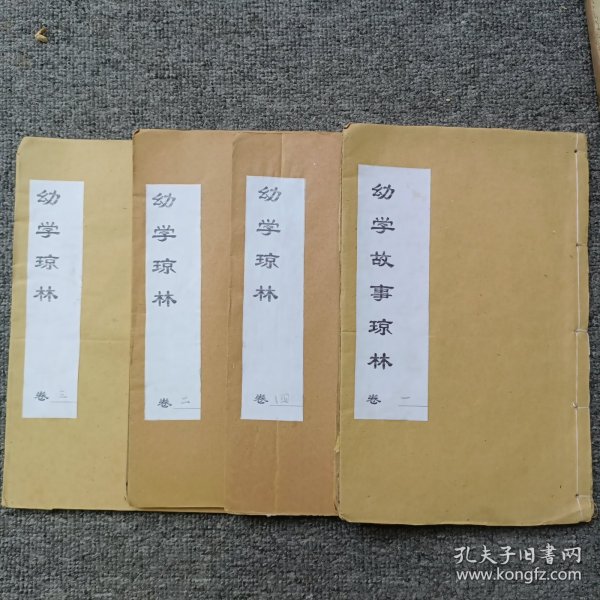 幼学琼林
卷三
幼学琼林
卷二
幼学琼林
卷四
幼学故事琼林
卷一
孔夫子旧书网
www.kongfz.com